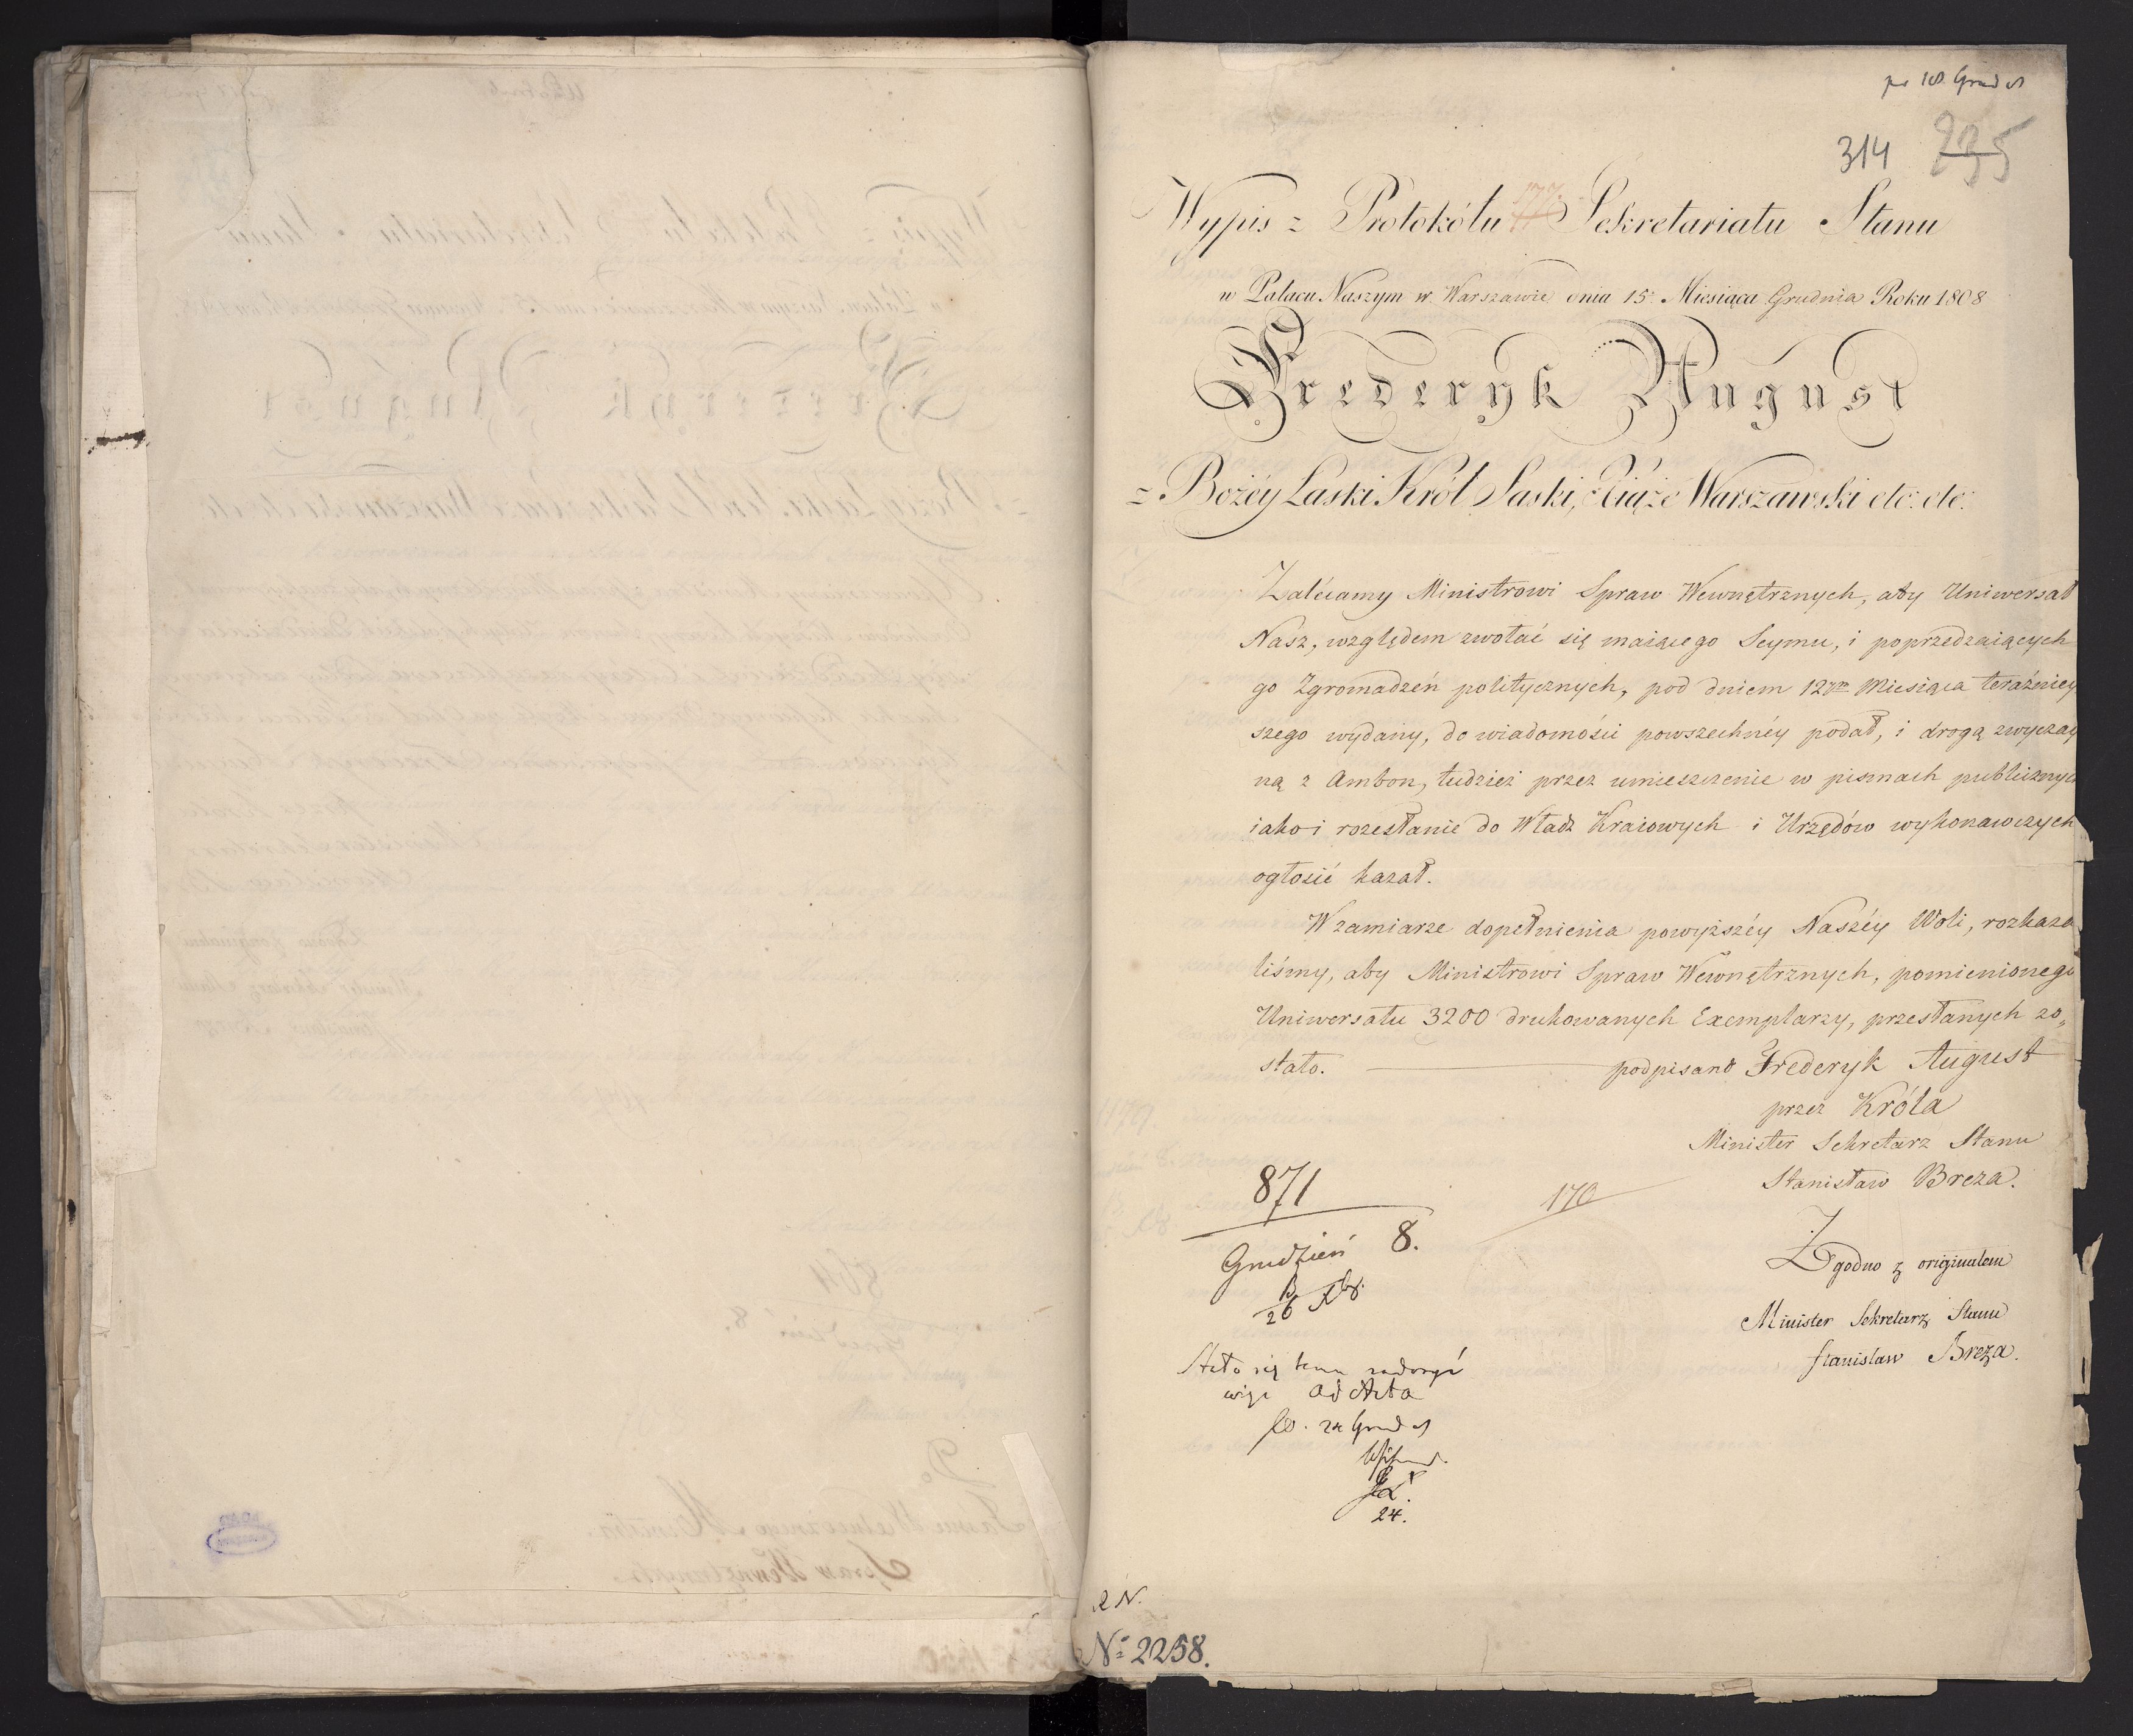 pr 18 Grud 8
314 235
177
Wypis z Protokółu Sekretariatu Stanu
w Pałacu Naszym w Warszawie dnia 15. Miesiąca Grudnia Roku 1808
Frederyk August
z Bożéy Łaski Król Saski, Xiąże Warszawski etc: etc:
Zalécamy Ministrowi Spraw Wewnętrznych, aby Uniwersał
Nasz, względem zwołać się maiącego Seymu, i poprzedzaiących
go Zgromadzeń politycznych, pod dniem 12ym Miesiąca teraźniey
szego wydany, do wiadomości powszechnéy podał, i drogą zwyczay
ną z Ambon, tudzież przez umieszczenie w pismach publicznych
iako i rozesłanie do Władz Kraiowych i Urzędów wykonawczych
ogłosić kazał.
W zamiarze dopełnienia powyższéy Naszéy Woli, rozkaza
liśmy, aby Ministrowi Spraw Wewnętrznych, pomienionego
Uniwersału 3200 drukowanych Exemplarzy, przesłanych zo„
stało. podpisano Frederyk August
przez Króla
Minister Sekretarz Stanu
Stanisław Breza.
871
Grudzień 8.
170
26 Xbr.
Zgodno z originałem
Minister Sekretarz Stanu
Stanisław Breza.
Stało się temu zadosyć
więc ad Acta
24 Grud 8
24.
N.
No 2258.